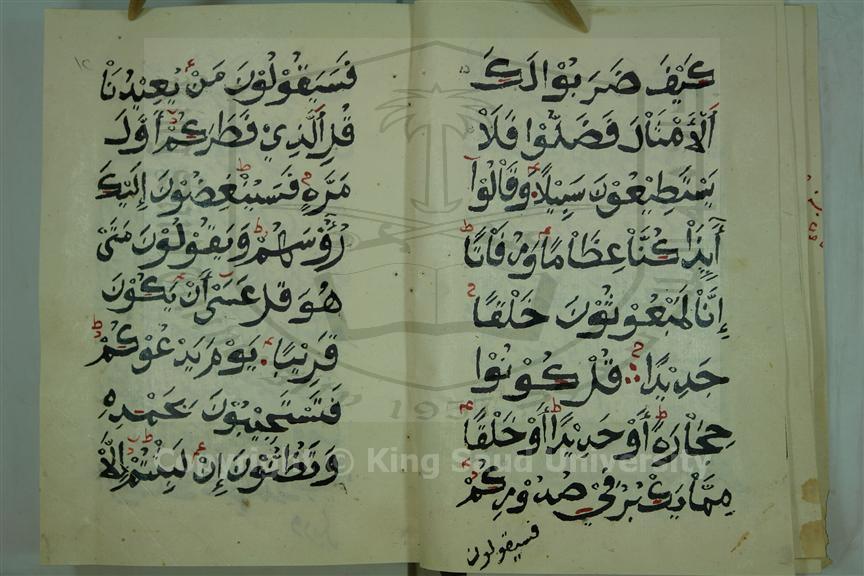 كَيْفَ ضَرَبُوْا لَكَ
اَلْأَمْثَالَ فَضَلُّوْا فَلَاْ
يَسْتَطِيْعُوْنَ سَبِيْلًا وَقَالُوْا
أَئِذَا كُنَّا عِظَامًا وَرُفَاتًا
إِنَّا لَمَبْعُوْثُوْنَ خَلْقًا
جَدِيْدًا قُلْ كُوْنُوْا
حِجَارَةً أَوْ حَدِيْدًا أَوْ خَلْقًا
مِمَّا يَكْبُرُ فِيْ صُدُوْرِكُمْ
فسيقولون
فَسَيَقُوْلُوْنَ مَنْ يُعِيْدُنَا
قُلِ الَّذِيْ فَطَرَكُمْ أَوَّلَ
مَرَّةٍ فَسَيُنْغِضُوْنَ إِلَيْكَ
رُؤُسَهُمْ وَيَقُوْلُوْنَ مَتَىْ
هُوَ قُلْ عَسَىْ أَنْ يَكُوْنَ
قَرِيْبًا يَوْمَ يَدْعُوْكُمْ
فَتَسْتَجِيْبُوْنَ بِحَمْدِهِ
وَتَظُنُّوْنَ إِنْ لَبِثْتُمْ إِلَّا
Copyright © King Saud University